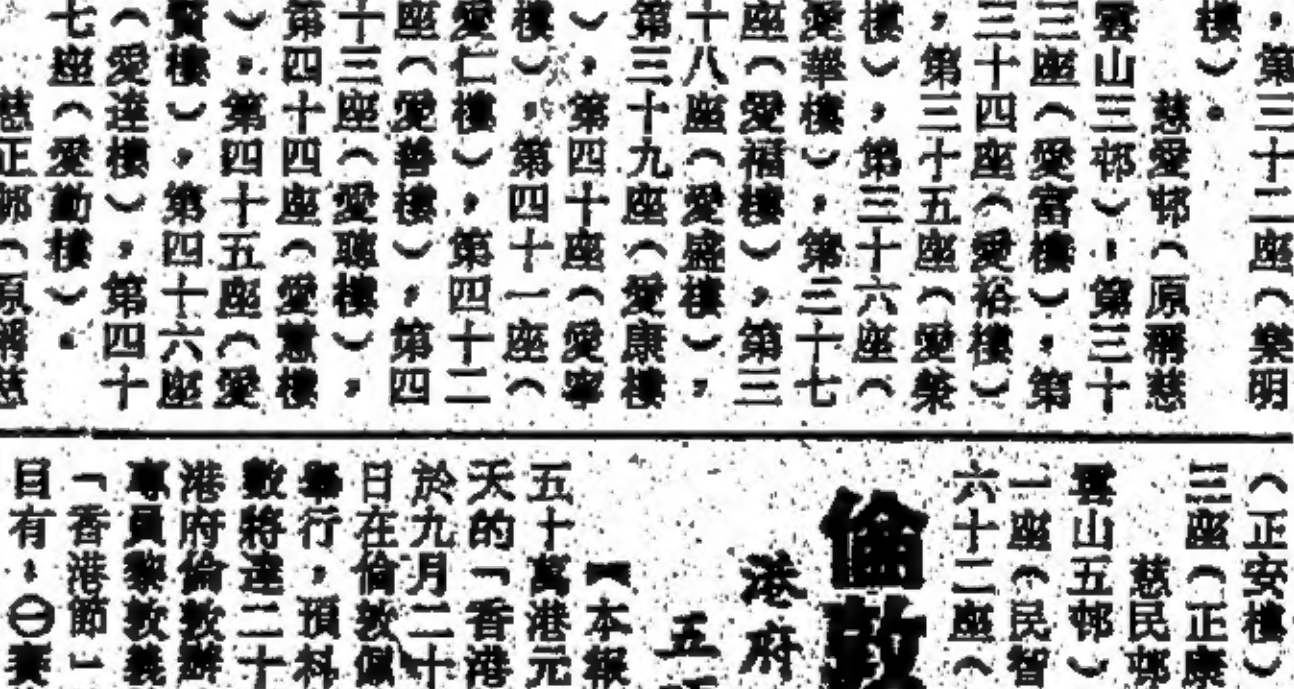 ，第三十二座（樂明
樓）。
慈愛邨（原稱慈
雲山三邨）－第三十
三座（愛富樓），第
三十四座（愛裕樓）
，第三十五座（愛榮
樓），第三十六座（
愛華樓），第三十七
座（愛福樓），第三
十八座（愛盛樓），
第三十九座（愛康樓
），第四十座（愛寧
樓），第四十一座（
愛仁樓），第四十二
座（愛善樓），第四
十三座（愛聰樓），
第四十四座（愛慧樓
），第四十五座（愛
賢樓），第四十六座
（愛達樓），第四十
七座（愛勤樓）。
慈正邨（原稱慈
（正安樓）
三座（正康
慈民邨
雲山五邨）
一座（民智
六十二座（
倫敦
港府
五
【本報
五十萬港元
天的「香港
於九月二十
日在倫敦佩
舉行，預料
數將達二十
港府倫敦辦
專員黎敦義
「香港節」
目有：㊀